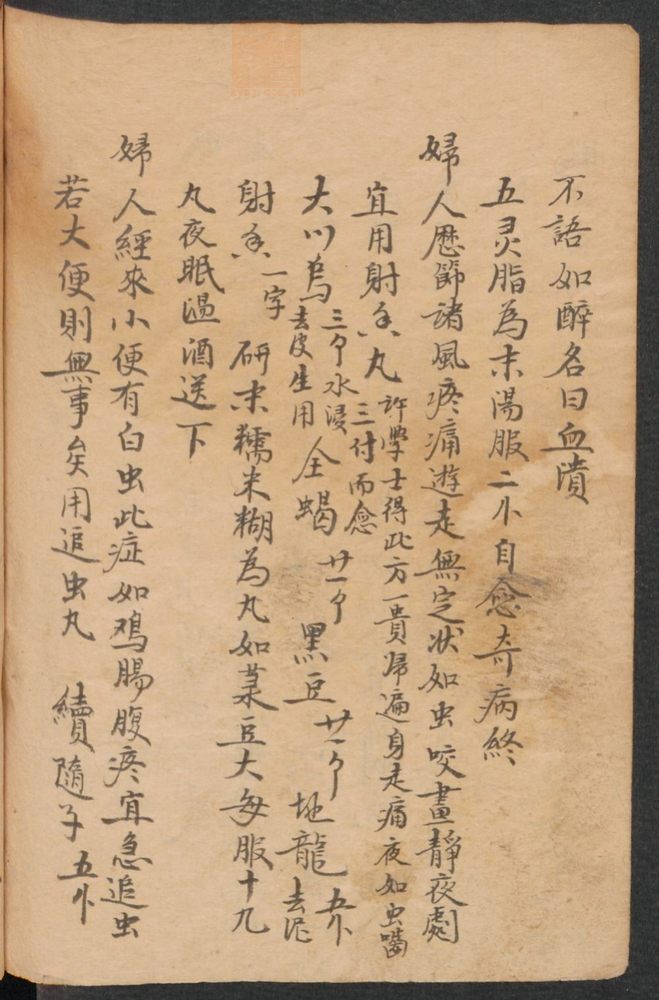 不語如醉名曰血潰
五灵脂為末湯服二卜自愈奇病終
婦人歷節諸風疼痛遊走無定状如虫咬晝靜夜劇
宜用射香丸 許學士得此方一貴婦遍身走痛夜如虫嚙
三付而愈
大川烏 三个水浸
去皮生用 全蝎 廿一个 黑豆 廿一个 地龍 五卜
去泥
射香 一字 研末糯米糊為丸如菉豆大每服十九
丸夜眠温酒送下
婦人經來小便有白虫此症如鸡腸腹疼宜急追虫
若大便則無事矣用追虫丸 續隨子 五卜